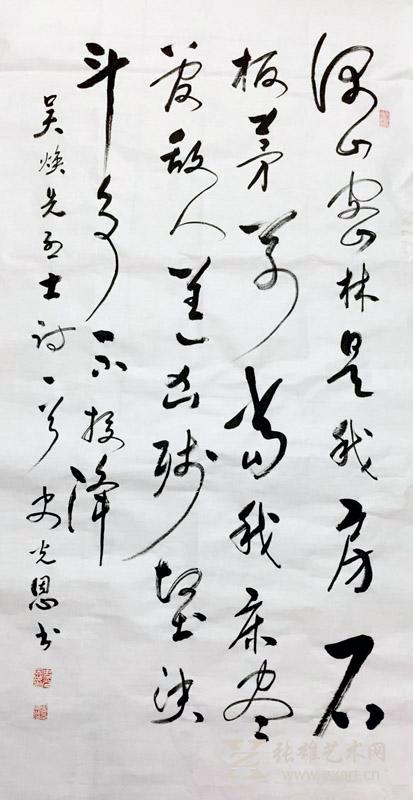 深山密林是我房石
板茅草当我床尽
管敌人凶残坚决
斗争不投降
吴焕先烈士诗一首 史光恩书
张雄艺术网
www.zxart.cn